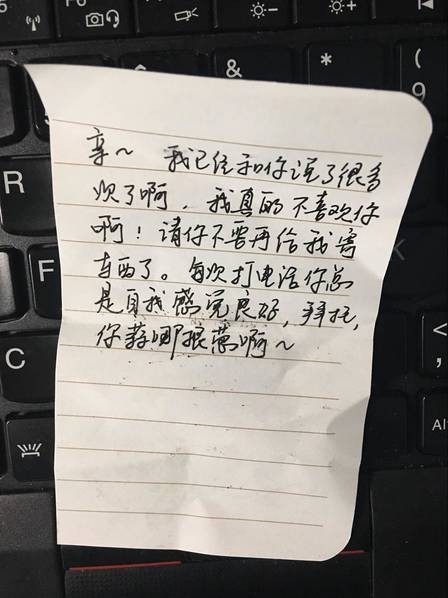 F6
&
*
(
9
R
F
C
亲～ 我已经和你说了很多
次了啊，我真的不喜欢你
啊！请你不要再给我寄
东西了。每次打电话你总
是自我感觉良好，拜托，
你算哪根葱啊～